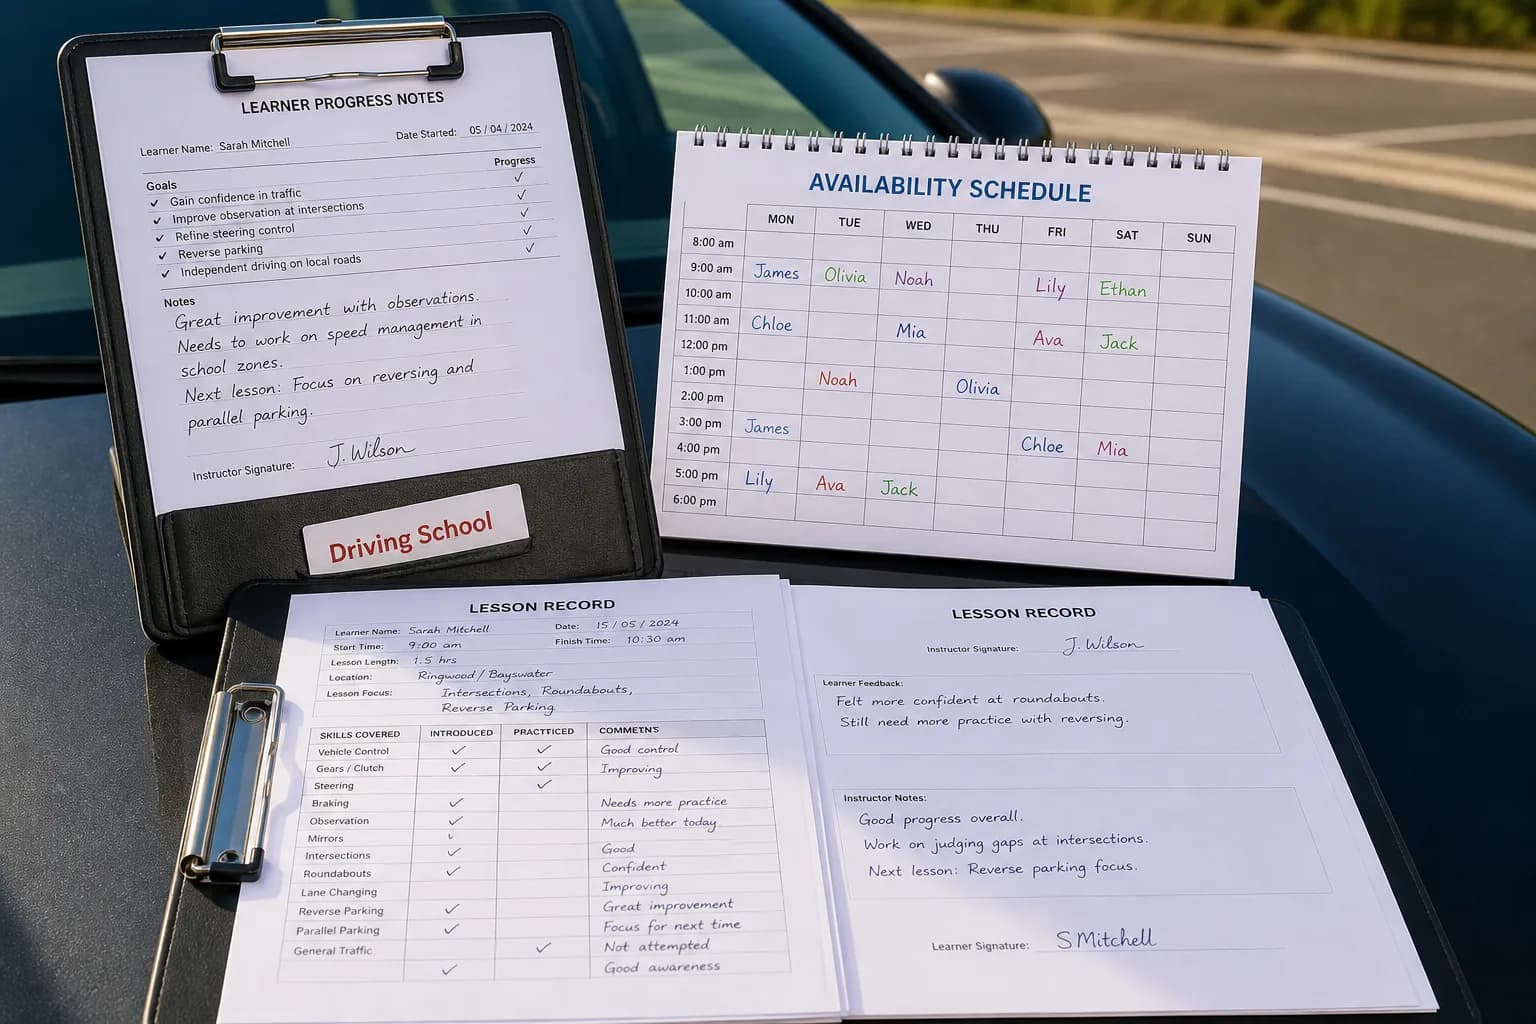 LEARNER PROGRESS NOTES
Learner Name: Sarah Mitchell Date Started: 05 / 04 / 2024
Goals Progress
✓ Gain confidence in traffic ✓
✓ Improve observation at intersections ✓
✓ Refine steering control ✓
✓ Reverse parking ✓
✓ Independent driving on local roads ✓
Notes
Great improvement with observations.
Needs to work on speed management in
school zones.
Next lesson: Focus on reversing and
parallel parking.
Instructor Signature: J. Wilson
Driving School
AVAILABILITY SCHEDULE
MON TUE WED THU FRI SAT SUN
8:00 am
9:00 am James Olivia Noah Lily Ethan
10:00 am
11:00 am Chloe Mia Ava Jack
12:00 pm
1:00 pm Noah Olivia
2:00 pm
3:00 pm James Chloe Mia
4:00 pm
5:00 pm Lily Ava Jack
6:00 pm
LESSON RECORD
Learner Name: Sarah Mitchell Date: 15 / 05 / 2024
Start Time: 9:00 am Finish Time: 10:30 am
Lesson Length: 1.5 hrs
Location: Ringwood / Bayswater
Lesson Focus: Intersections, Roundabouts,
Reverse Parking
SKILLS COVERED INTRODUCED PRACTFICED COMMETNS
Vehicle Control ✓ ✓ Good control
Gears / Clutch ✓ ✓ Improving
Steering ✓
Braking ✓ Needs more practice
Observation ✓ Much better today
Mirrors ✓
Intersections ✓ Good
Roundabouts ✓ Confident
Lane Changing Improving
Reverse Parking ✓ Great improvement
Parallel Parking ✓ Focus for next time
General Traffic ✓ Not attempted
✓ Good awareness
LESSON RECORD
Instructor Signature: J. Wilson
Learner Feedback:
Felt more confident at roundabouts.
Still need more practice with reversing.
Instructor Notes:
Good progress overall.
Work on judging gaps at intersections.
Next lesson: Reverse parking focus.
Learner Signature: S Mitchell